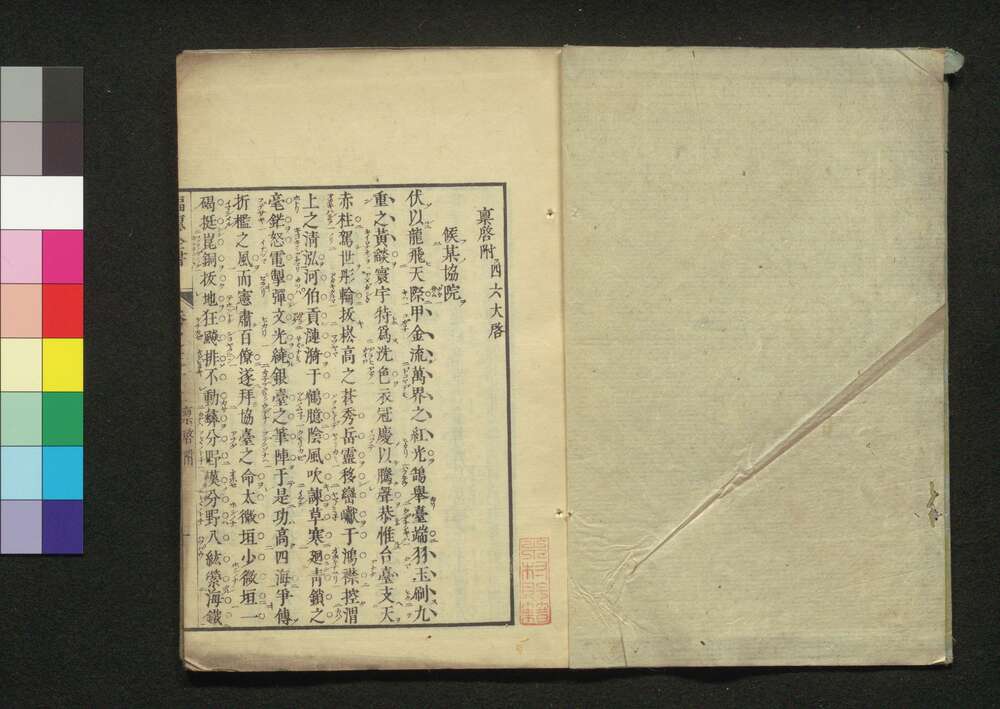 稟啓附 四六大啓
候某協院
伏以龍飛天際甲金流萬界之紅光鵠舉臺端羽玉刷九
重之黃燄寰宇特爲洗色衣冠慶以騰聲恭惟台臺支天
赤柱駕世彤輪扳崧高之蒼秀岳靈移巒巘于鴻襟控渭
上之清泓河伯貢漣漪于鶴臆陰風吹諫草寒廻青鎖之
毫銋怒電擊彈文光繞銀臺之筆陣于是功高四海爭傳
折檻之風而憲肅百僚遂拜協臺之命太微垣少微垣一
碣挺崑銅扳地狂飈排不動彝分野漠分野八紘縈海鐵
稟啓附